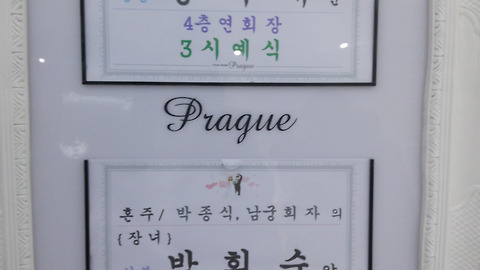 4층연회장
3시예식
Prague
Prague
혼주/ 박종식, 남궁희자의
{장녀}
박희수